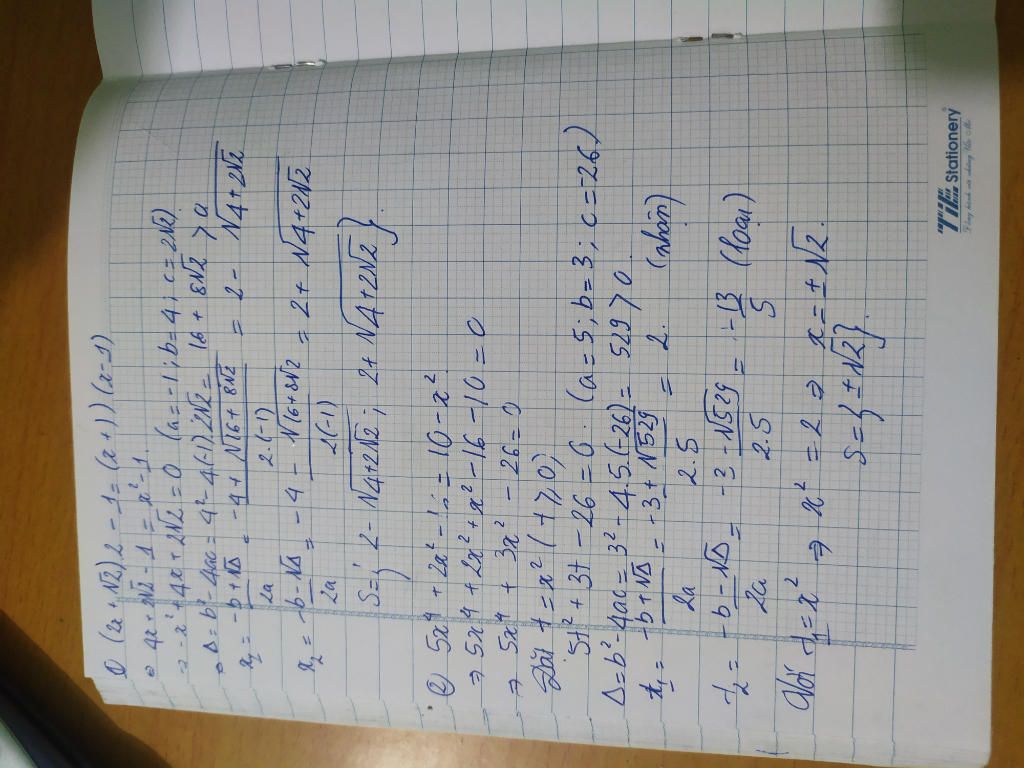 b) (2x + √2)2 - 1 = (x + 1)(x - 1)
⇔ 4x + 2√2 - 1 = x² - 1.
⇒ -x² + 4x + 2√2 = 0 (a = -1; b = 4; c = 2√2).
⇒ Δ = b² - 4ac = 4² - 4.(-1).2√2 = 16 + 8√2 > 0
x₁ = (-b + √Δ)/2a = (-4 + √(16 + 8√2))/(2.(-1)) = 2 - √(4 + 2√2)
x₂ = (-b - √Δ)/2a = (-4 - √(16 + 8√2))/(2(-1)) = 2 + √(4 + 2√2)
S = { 2 - √(4 + 2√2); 2 + √(4 + 2√2) }.
c) 5x⁴ + 2x² - 16 = 10 - x².
⇒ 5x⁴ + 2x² + x² - 16 - 10 = 0
⇒ 5x⁴ + 3x² - 26 = 0
Đặt t = x² (t ≥ 0)
5t² + 3t - 26 = 0. (a = 5; b = 3; c = -26)
Δ = b² - 4ac = 3² - 4.5.(-26) = 529 > 0.
t₁ = (-b + √Δ)/2a = (-3 + √529)/2.5 = 2. (nhận)
t₂ = (-b - √Δ)/2a = (-3 - √529)/2.5 = -13/5 (loại)
Với t₁ = x² ⇒ x² = 2 ⇒ x = ±√2.
S = { ±√2 }.
Stationery